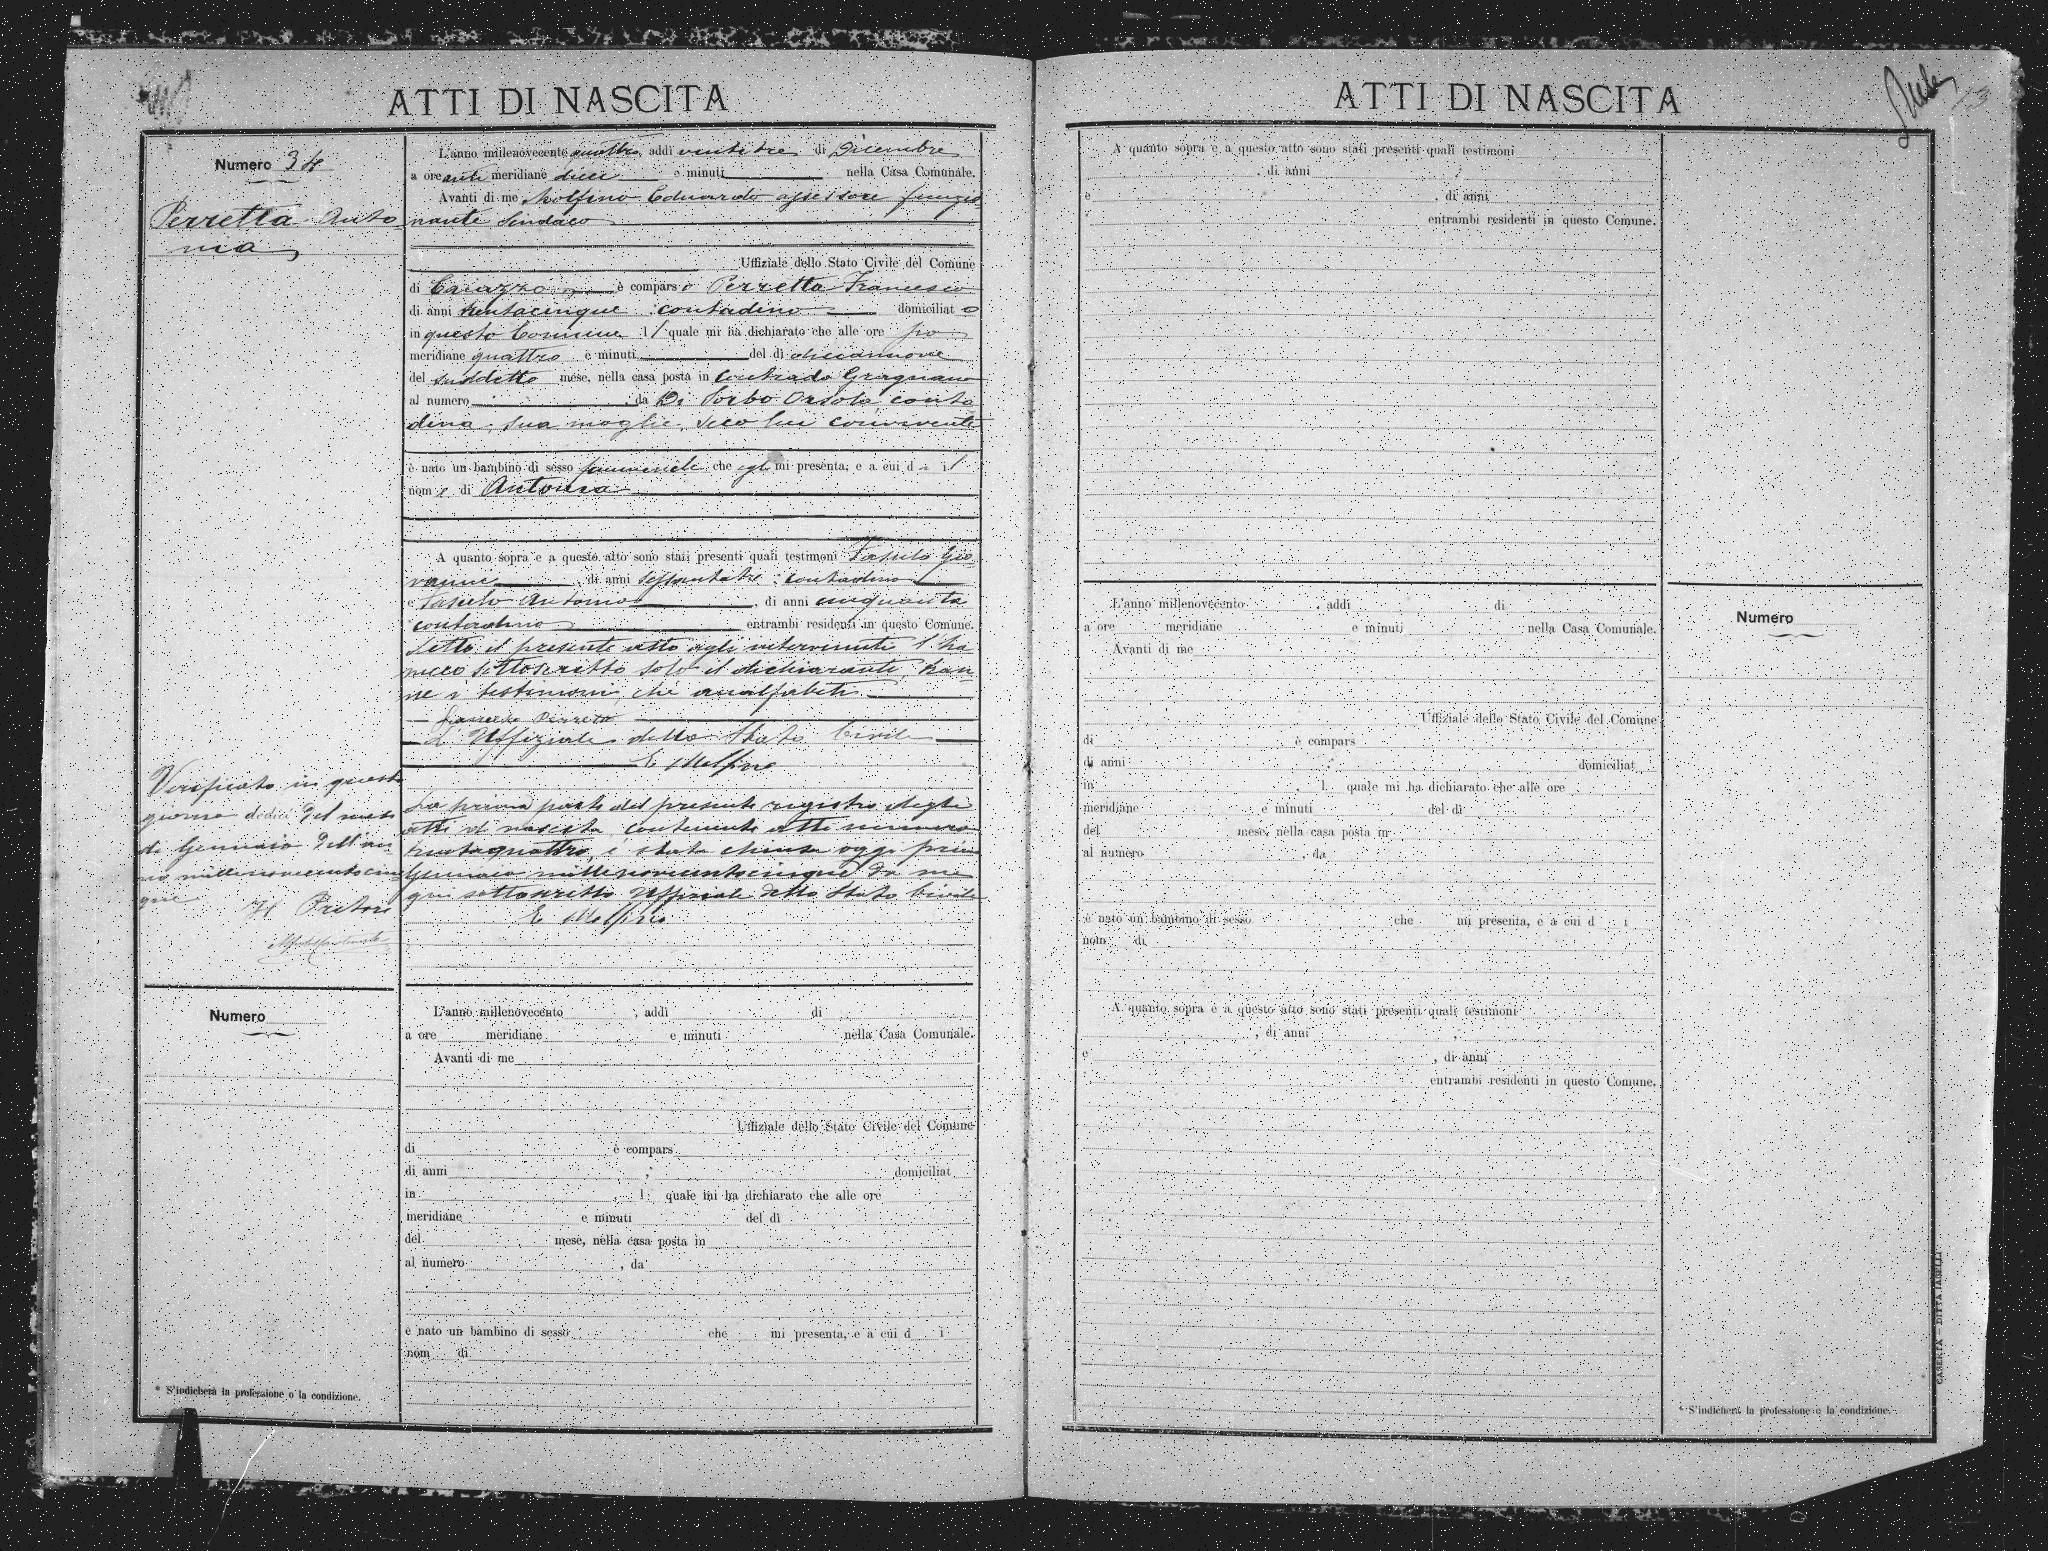 ATTI DI NASCITA
Numero 34
Perretta Anto
nia
L'anno millenovecento quattro, addì ventitre di Dicembre
a ore anti meridiane dieci e minuti nella Casa Comunale.
Avanti di me Molfino Eduardo assessore funzio
nante Sindaco
Uffiziale dello Stato Civile del Comune
di Caiazzo è comparso Perretta Francesco
di anni trentacinque contadino domiciliato
in questo Comune il quale mi ha dichiarato che alle ore po
meridiane quattro e minuti del dì diciannove
del suddetto mese, nella casa posta in contrada Gragnano
al numero , da Di Sorbo Orsola conta
dina, sua moglie, seco lui convivente
è nato un bambino di sesso femminile che egli mi presenta, e a cui dà il
nome di Antonia
A quanto sopra e a questo atto sono stati presenti quali testimoni Fasulo Gio-
vanni , di anni sessantatre, contadino
e Fasulo Antonio , di anni cinquanta
contadino entrambi residenti in questo Comune.
Letto il presente atto agli intervenuti l'ha
meco sottoscritto solo il dichiarante,
i testimoni, analfabeti
Francesco Perreta
L'Uffiziale dello Stato Civile
E Molfino
Verificato in questo
giorno dodici del mese
di Gennaio dell'an-
no millenovecentocin
que Il Pretore
La prima parte del presente registro degli
atti di nascita, contenente atti numero
trentaquattro, è stata chiusa oggi primo
Gennaio millenovecentocinque da me
qui sottoscritto Uffiziale dello Stato Civile
E Molfino
Numero
L'anno millenovecento , addì di
a ore meridiane e minuti nella Casa Comunale.
Avanti di me
Uffiziale dello Stato Civile del Comune
di è compars
di anni , domiciliat
in , l quale mi ha dichiarato che alle ore
meridiane e minuti del dì
del mese, nella casa posta in
al numero , da
è nato un bambino di sesso che mi presenta, e a cui d i
nom di
* S'indicherà la professione o la condizione.
ATTI DI NASCITA
13
A quanto sopra e a questo atto sono stati presenti quali testimoni
, di anni ,
e , di anni
entrambi residenti in questo Comune.
L'anno millenovecento , addì di
a ore meridiane e minuti nella Casa Comunale.
Numero
Avanti di me
Uffiziale dello Stato Civile del Comune
di è compars
di anni , domiciliat
in , l quale mi ha dichiarato che alle ore
meridiane e minuti del dì
del mese, nella casa posta in
al numero , da
è nato un bambino di sesso che mi presenta, e a cui d i
nom di
A quanto sopra e a questo atto sono stati presenti quali testimoni
, di anni ,
e , di anni
entrambi residenti in questo Comune.
CASERTA — DITTA JASELLI
* S'indicherà la professione o la condizione.